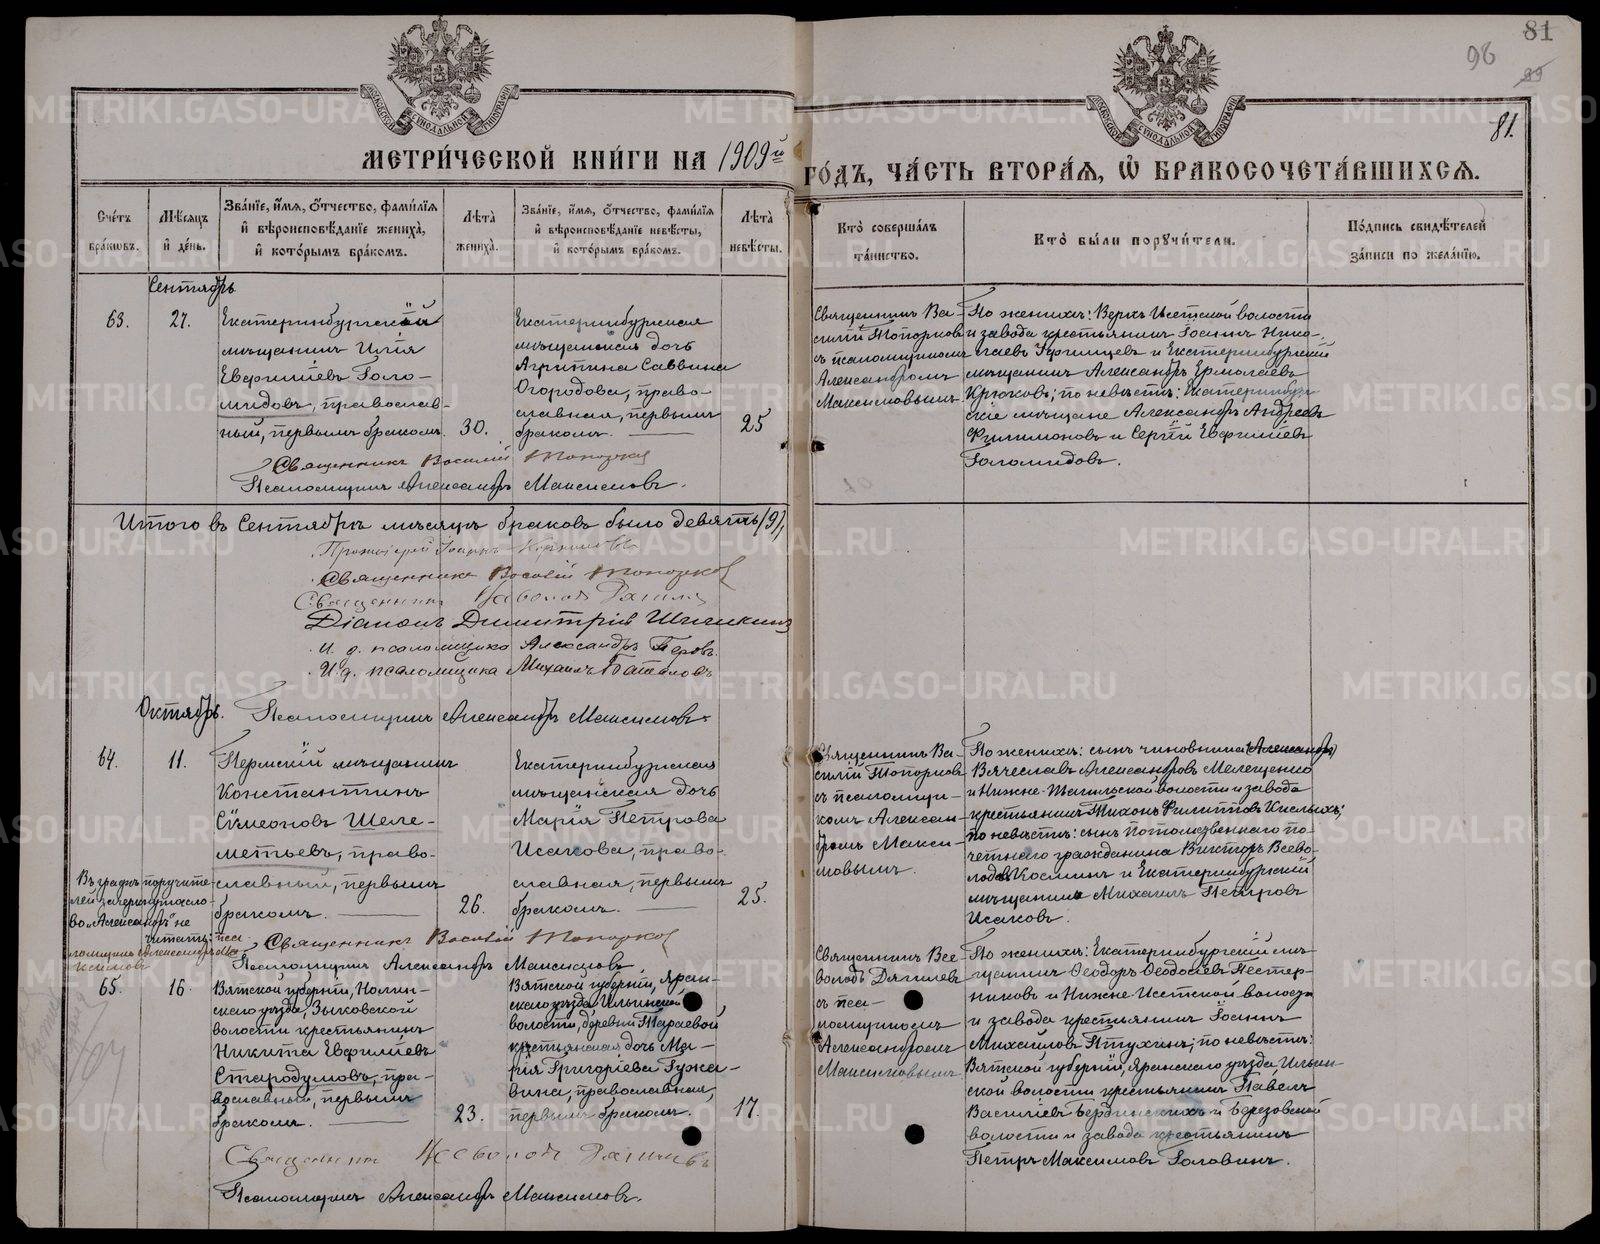 81
96
89
81.
МЕТРИ́ЧЕСКОЙ КНИ́ГИ НА 1909й ГО́ДЪ, ЧА́СТЬ ВТОРА́Я, Ѽ БРАКОСОЧЕТА́ВШИХСЯ.
Сче́тъ бра́ковъ.
Мѣ́сяцъ и҆ де́нь.
Зва́нїе, и҆́мя, ѻ҆́тчество, фами́лїя и҆ вѣроисповѣ́данїе жениха̀, и҆ кото́рымъ бра́комъ.
Лѣ́та жениха̀.
Зва́нїе, и҆́мя, ѻ҆́тчество, фами́лїя и҆ вѣроисповѣ́данїе невѣ́сты, и҆ кото́рымъ бра́комъ.
Лѣ́та невѣ́сты.
Кто̀ соверша́лъ та́инство.
Кто̀ бы́ли поручи́тели.
По́дпись свидѣ́телей за́писи по жела́нїю.
Сентябрь
63.
27.
Екатеринбургскій
мѣщанинъ Илія
ЕвфиміевъГоло-
мидовъ, православ-
ный, первымъ бракомъ.
30.
Екатеринбургская
мѣщанская дочь
Агрипина Саввина
Огородова, право-
славная, первымъ
бракомъ.
25
Священникъ Ва-
силій Топорковъ
съ псаломщикомъ
Александромъ
Максимовымъ.
По женихѣ: Верхъ Исетской волости
и завода крестьянинъ Іоаннъ Нико-
лаевъ и Екатеринбургскій
мѣщанинъ Александръ Ермолаевъ
Крюковъ; по невѣстѣ: Екатеринбург-
скіе мѣщане Александръ Андреевъ
Филимоновъ и Сергій Евфиміевъ
Голомидовъ.
Священникъ Василій Топорковъ
Псаломщикъ Александръ Максимовъ.
Итого въ Сентябрѣ мѣсяцѣ браковъ было девять (9)
Протоіерей Іоаннъ
Священникъ Василій Топорковъ
Священникъ Всеволодъ
Діаконъ Димитрій Шишкинъ
И. д. псаломщика Александръ Перовъ.
И. д. псаломщика Михаилъ Баталовъ
Октябрь.
Псаломщикъ Александръ Максимовъ
64.
11.
Пермскій мѣщанинъ
Константинъ
Сѵмеоновъ Шеле-
метьевъ, право-
славный, первымъ
бракомъ.
26.
Екатеринбургская
мѣщанская дочь
Марія Петрова
Исакова, право-
славная, первымъ
бракомъ.
25.
Священникъ Ва-
силій Топорковъ
съ псаломщи-
комъ Алексан-
дромъ Макси-
мовымъ.
По женихѣ: сынъ чиновника Александръ
Вячеславъ Александровъ Мелещенко
и Нижне-Тагильской волости и завода
крестьянинъ Тихонъ Филипповъ Кислыхъ;
по невѣстѣ: сынъ потомственнаго по-
четнаго гражданина Викторъ Всево-
лодовъ Косминъ и Екатеринбургскій
мѣщанинъ Михаилъ Петровъ
Исаковъ.
Въ графѣ поручите-
лей зачеркнутое сло-
во „Александръ" не
читать: пса-
ломщикъ Александръ Ма-
ксимовъ
Священникъ Василій Топорковъ
Псаломщикъ Александръ Максимовъ
65.
16.
Вятской губерніи, Нолин-
скаго уѣзда, Зыковской
волости крестьянинъ
Никита Евфиміевъ
Стародумовъ, пра-
вославный, первымъ
бракомъ.
23.
Вятской губерніи, Яран-
скаго уѣзда Ильинской
волости, деревни Тараевой
крестьянская дочь Ма-
рія Григоріева Гужа-
вина, православная,
первымъ бракомъ.
17.
Священникъ Все-
володъ Дягилевъ
съ пса-
ломщикомъ
Александромъ
Максимовымъ
По женихѣ: Екатеринбургскій мѣ-
щанинъ Ѳеодоръ Ѳеодосіевъ Пестер-
никовъ и Нижне Исетской волости
и завода крестьянинъ Іоаннъ
Михайловъ Птухинъ; по невѣстѣ:
Вятской губерніи, Яранскаго уѣзда Ильин-
ской волости крестьянинъ Павелъ
Василіевъ Бердинскихъ и Березовской
волости и завода крестьянинъ
Петръ Максимовъ Головинъ.
Священникъ Всеволодъ Дягилевъ
Псаломщикъ Александръ Максимовъ.
METRIKI.GASO-URAL.RU